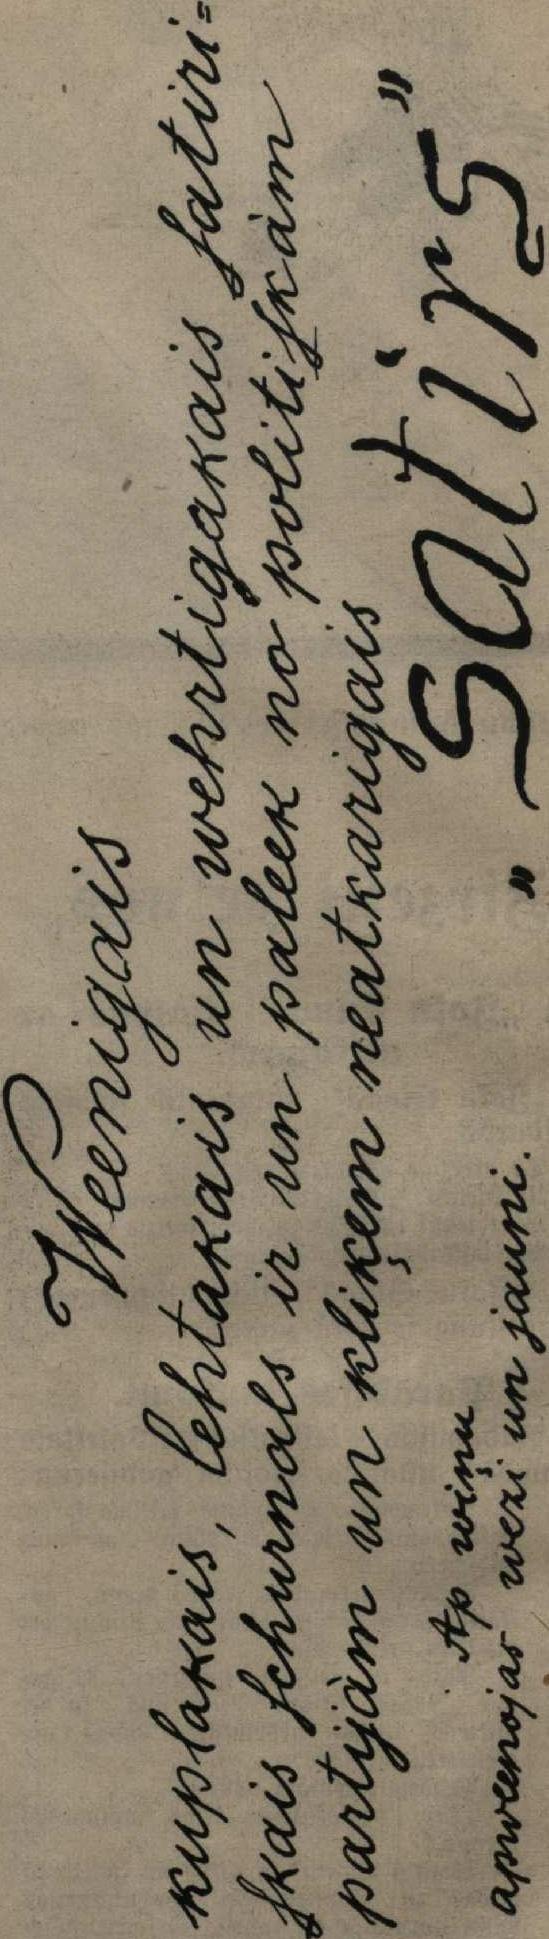 Weenigais
kuplakais, lehtakais un wehrtigakais ſatiri=
ſkais ſchurnals ir un paleek no politiſkàm
partijàm un kliķem neatkarigais
„Satirs”
Ap wiņu
apweenojas wezi un jauni.